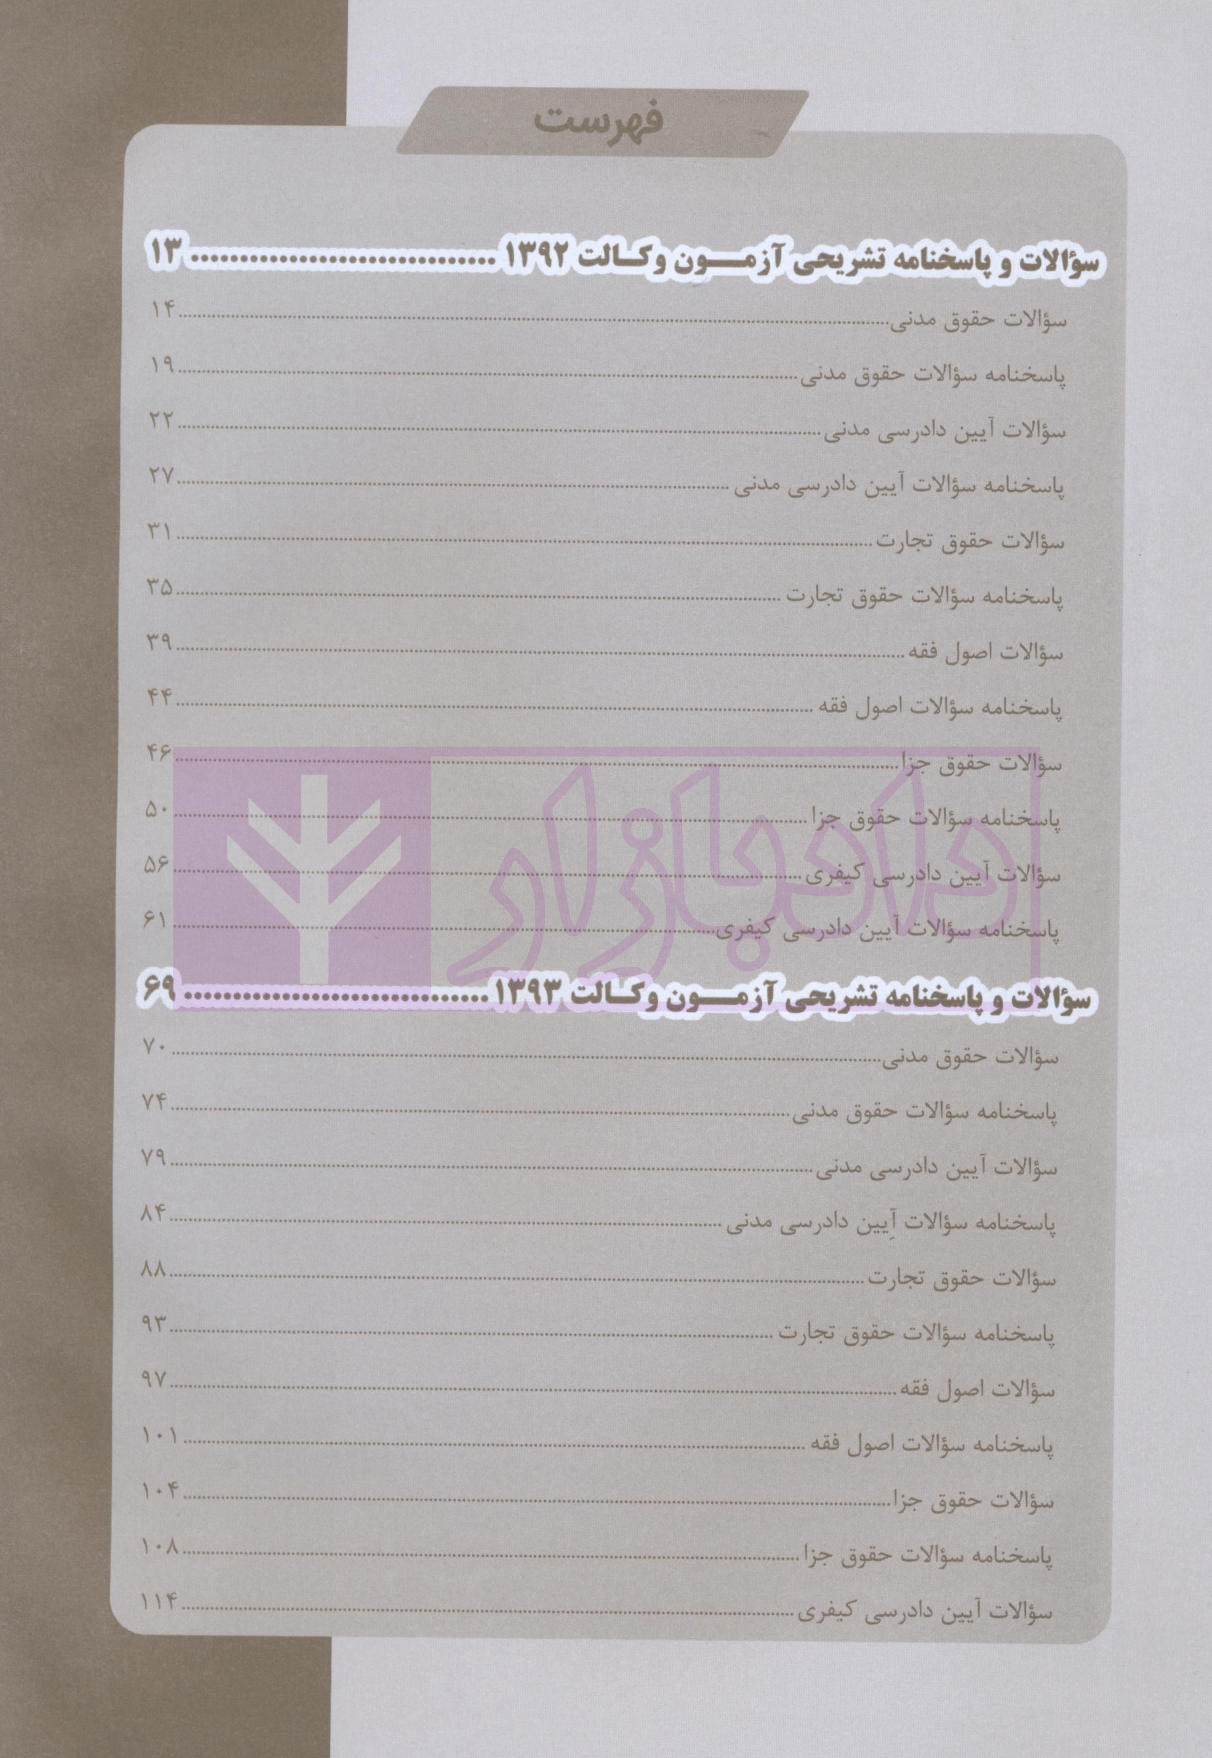 فهرست
سؤالات و پاسخنامه تشریحی آزمـــون وکـالت ۱۳۹۲ ............................... ۱۳
سؤالات حقوق مدنی ............................... ۱۴
پاسخنامه سؤالات حقوق مدنی ............................... ۱۹
سؤالات آیین دادرسی مدنی ............................... ۲۲
پاسخنامه سؤالات آیین دادرسی مدنی ............................... ۲۷
سؤالات حقوق تجارت ............................... ۳۱
پاسخنامه سؤالات حقوق تجارت ............................... ۳۵
سؤالات اصول فقه ............................... ۳۹
پاسخنامه سؤالات اصول فقه ............................... ۴۴
سؤالات حقوق جزا ............................... ۴۶
پاسخنامه سؤالات حقوق جزا ............................... ۵۰
سؤالات آیین دادرسی کیفری ............................... ۵۶
پاسخنامه سؤالات آیین دادرسی کیفری ............................... ۶۱
دادبازار
سؤالات و پاسخنامه تشریحی آزمـــون وکـالت ۱۳۹۳ ............................... ۶۹
سؤالات حقوق مدنی ............................... ۷۰
پاسخنامه سؤالات حقوق مدنی ............................... ۷۴
سؤالات آیین دادرسی مدنی ............................... ۷۹
پاسخنامه سؤالات آیین دادرسی مدنی ............................... ۸۴
سؤالات حقوق تجارت ............................... ۸۸
پاسخنامه سؤالات حقوق تجارت ............................... ۹۳
سؤالات اصول فقه ............................... ۹۷
پاسخنامه سؤالات اصول فقه ............................... ۱۰۱
سؤالات حقوق جزا ............................... ۱۰۴
پاسخنامه سؤالات حقوق جزا ............................... ۱۰۸
سؤالات آیین دادرسی کیفری ............................... ۱۱۴